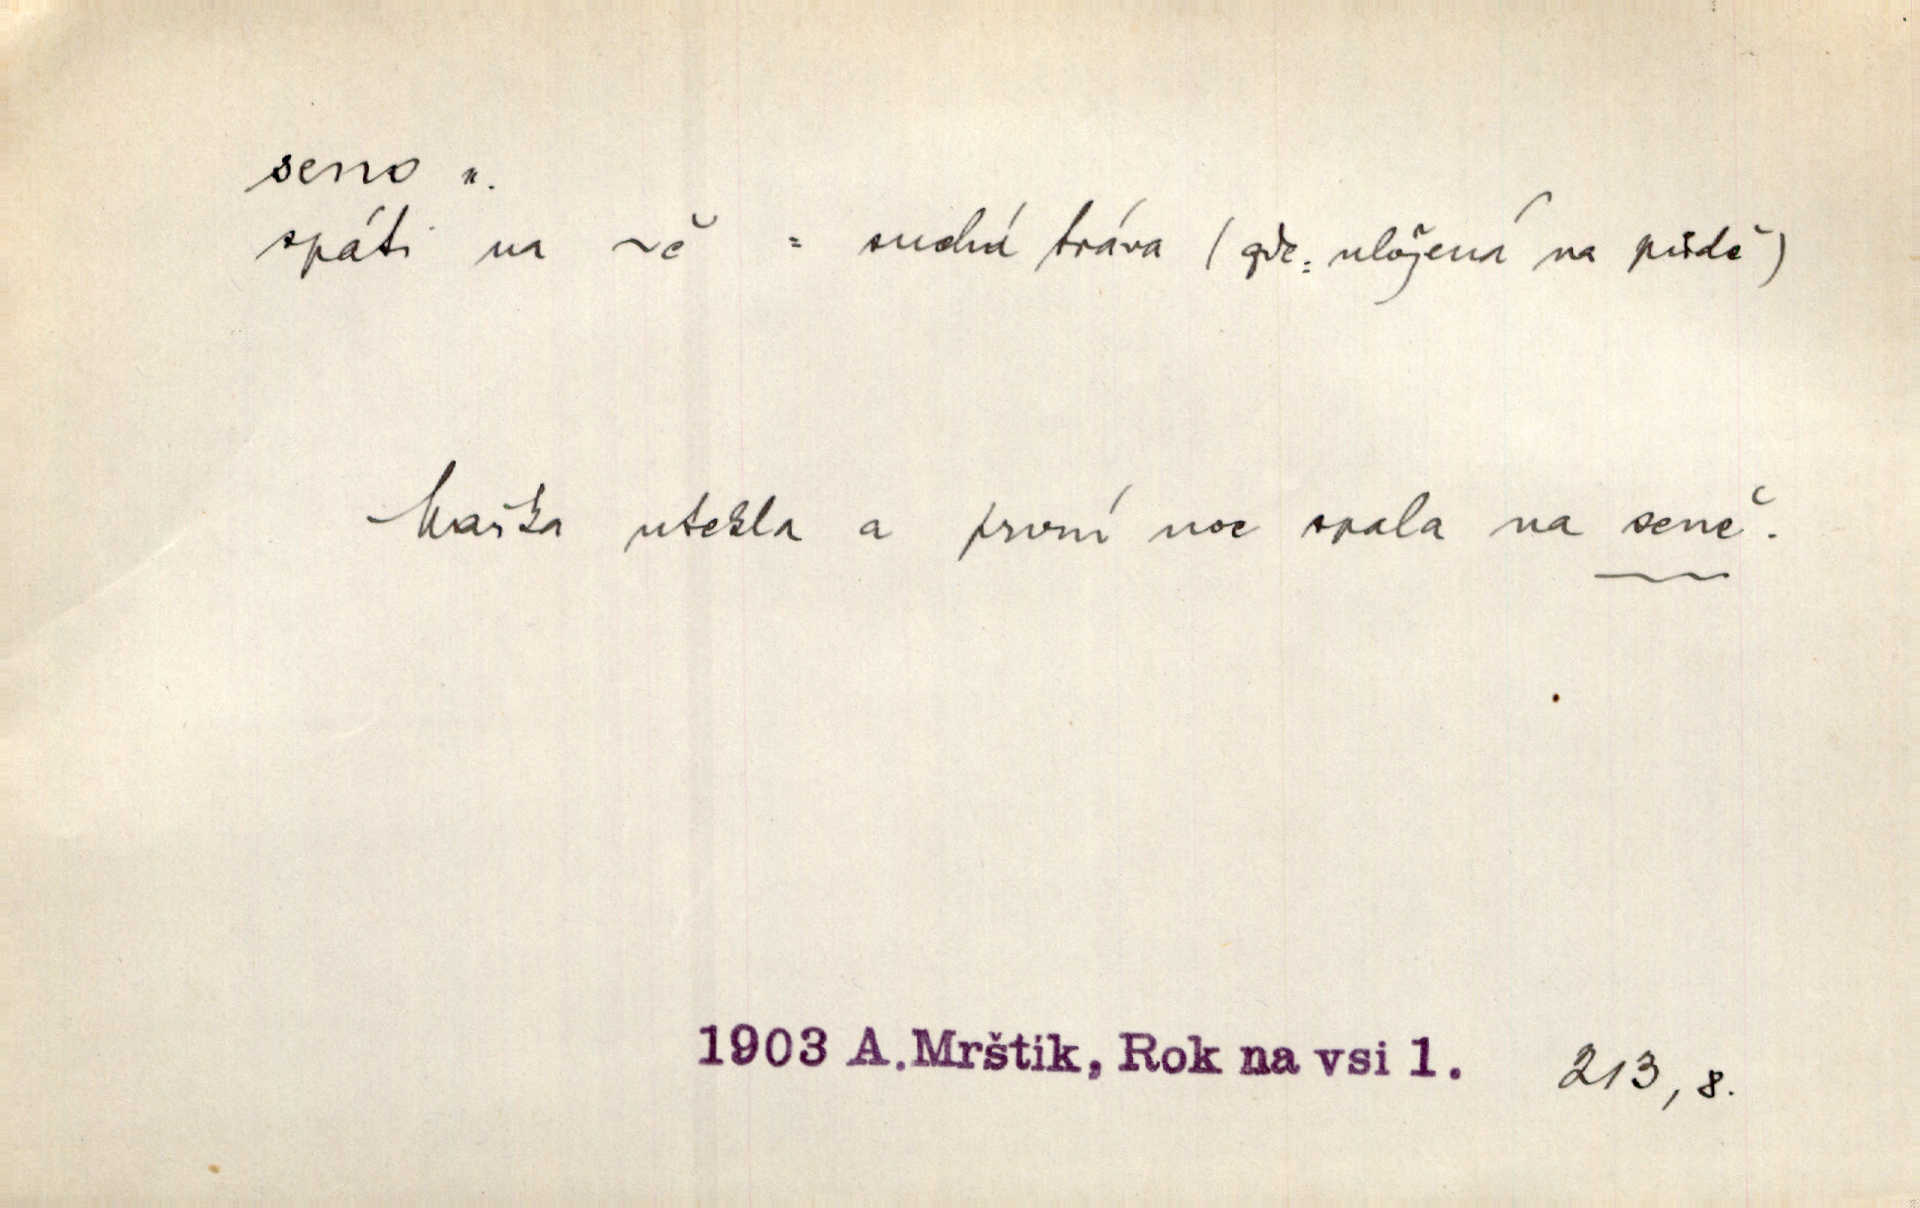 seno n.
spáti na ~ě = suchá tráva (zde: uložená na půdě)
Maška utekla a první noc spala na seně.
1903 A.Mrštík, Rok na vsi 1. 213, 8.